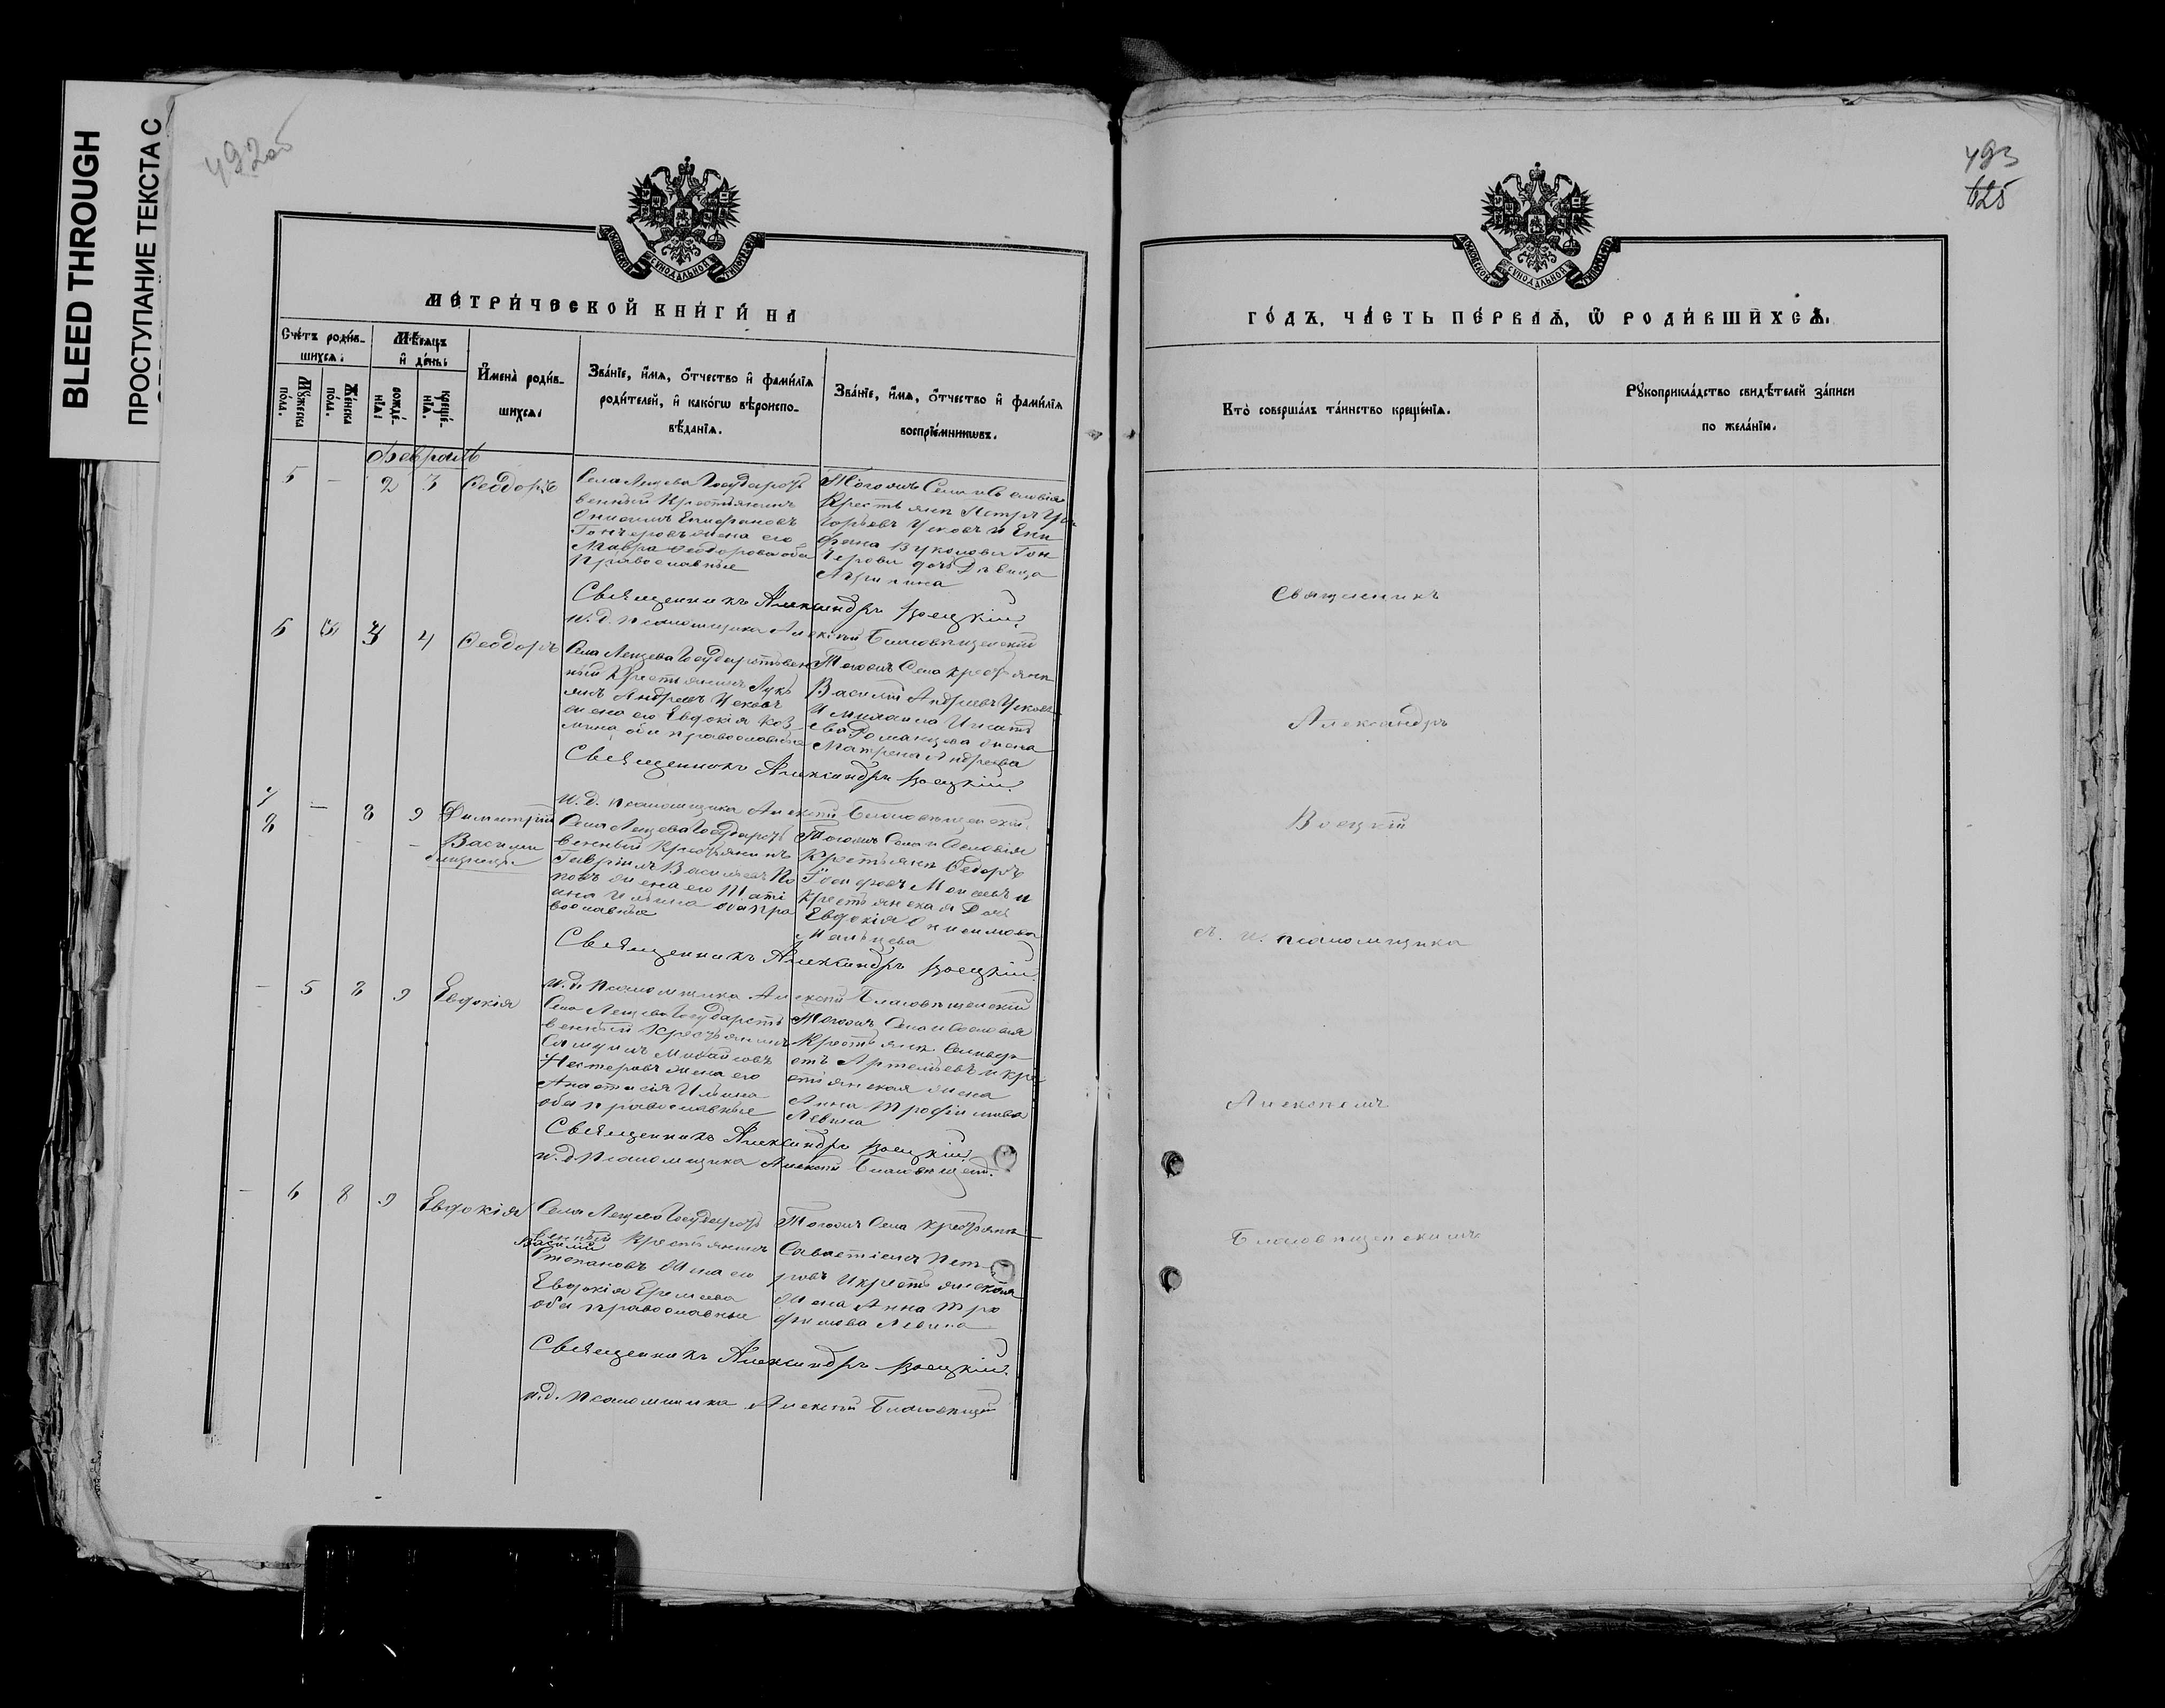 BLEED THROUGH
ПРОСТУПАНИЕ ТЕКСТА С
492об
МЕТРИЧЕСКОЙ КНИГИ НА
Счетъ родив-
шихся.
Мѣсяцъ
и день.
Мужеска
пола.
Женска
пола.
рожде-
нія.
креще-
нія.
Имена родив-
шихся.
Званіе, имя, отчество и фамилія
родителей, и какогѡ вѣроиспо-
вѣданія.
Званіе, имя, отчество и фамилія
воспріемниковъ.
Февраль
5 — 2 3 Ѳеодоръ
Села Лещева Государст
венный Крестьянинъ
Онисимъ Епифановъ
Гончеровъ жена его
Мавра Ѳеодорова оба
православные
Тогожъ Села и Сословія
Крестьянинъ Петръ
Усковъ и Епи
фана Вуколова Гон
черова дочь Дѣвица
Агрипина
Священникъ Александръ Воецкій.
и.д. псаломщика Алексѣй Благовѣщенскій
6 3 4 Ѳеодоръ
Села Лещева Государственный
Крестьянинъ Лукь
янъ Андреевъ Усковъ
жена его Евдокія Коз
мина оба православные
Тогожъ Села крестьянинъ
Василій Андреевъ Усковъ
и Михаила Игнать
ева Романцева жена
Матрена Андреева
Священникъ Александръ Воецкій.
и.д. псаломщика Алексѣй Благовѣщенскій.
7 — 8 9 Димитрій
8 Василій
близнецы
Села Лещева Государст
венный Крестьянинъ
Гавріилъ Васильевъ По
повъ жена его Таті
ана Ильина оба пра
вославные
Тогожъ Села и Сословія
Крестьянинъ Ѳедоръ
Іосифовъ Моисеевъ и
крестьянская Дочь
Евдокія Онисимова
Мальцева
Священникъ Александръ Воецкій
и.д. псаломщика Алексѣй Благовѣщенскій
— 5 8 9 Евдокія
Села Лещева Государст
венный Крестьянинъ
Самуилъ Михайловъ
Нестеровъ жена его
Анастасія Ильина
оба православные
Тогожъ Села и Сословія
Крестьянинъ Сильвер
стъ Артемьевъ и кре
стьянская жена
Анна Трофимова
Левина
Священникъ Александръ Воецкій.
и.д. псаломщика Алексѣй Благовѣщен.
— 6 8 9 Евдокія
Села Лещева Государст
венный Крестьянинъ
Василій
Степановъ жена его
Евдокія Еремеева
оба православные
Тогожъ Села крестьянинъ
Савастіанъ Пет
ровъ и крестьянская
жена Анна Тро
фимова Левина
Священникъ Александръ Воецкій.
и.д. псаломщика Алексѣй Благовѣщен
493
625
ГОДЪ, ЧАСТЬ ПЕРВАЯ, Ѡ РОДИВШИХСЯ.
Кто совершалъ таинство крещенія.
Рукоприкладство свидѣтелей записи
по желанію.
Священникъ
Александръ
Воецкій
съ и. псаломщика
Алексѣемъ
Благовѣщенскимъ